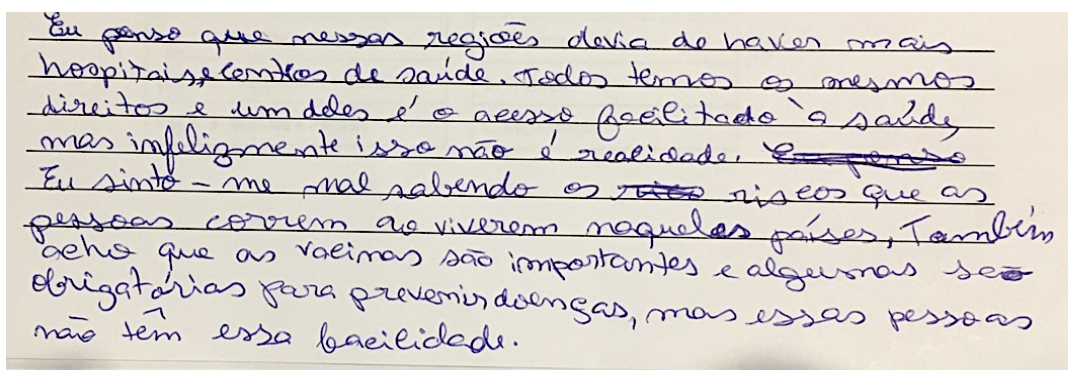 Eu penso que nessas regiões devia de haver mais
hospitais, e centros de saúde. Todos temos os mesmos
direitos e um deles é o acesso facilitado à saúde,
mas infelizmente isso não é realidade.
Eu sinto-me mal sabendo os riscos que as
pessoas correm ao viverem naqueles países, Também
acho que as vacinas são importantes e algumas
obrigatórias para prevenir doenças, mas essas pessoas
não têm essa facilidade.